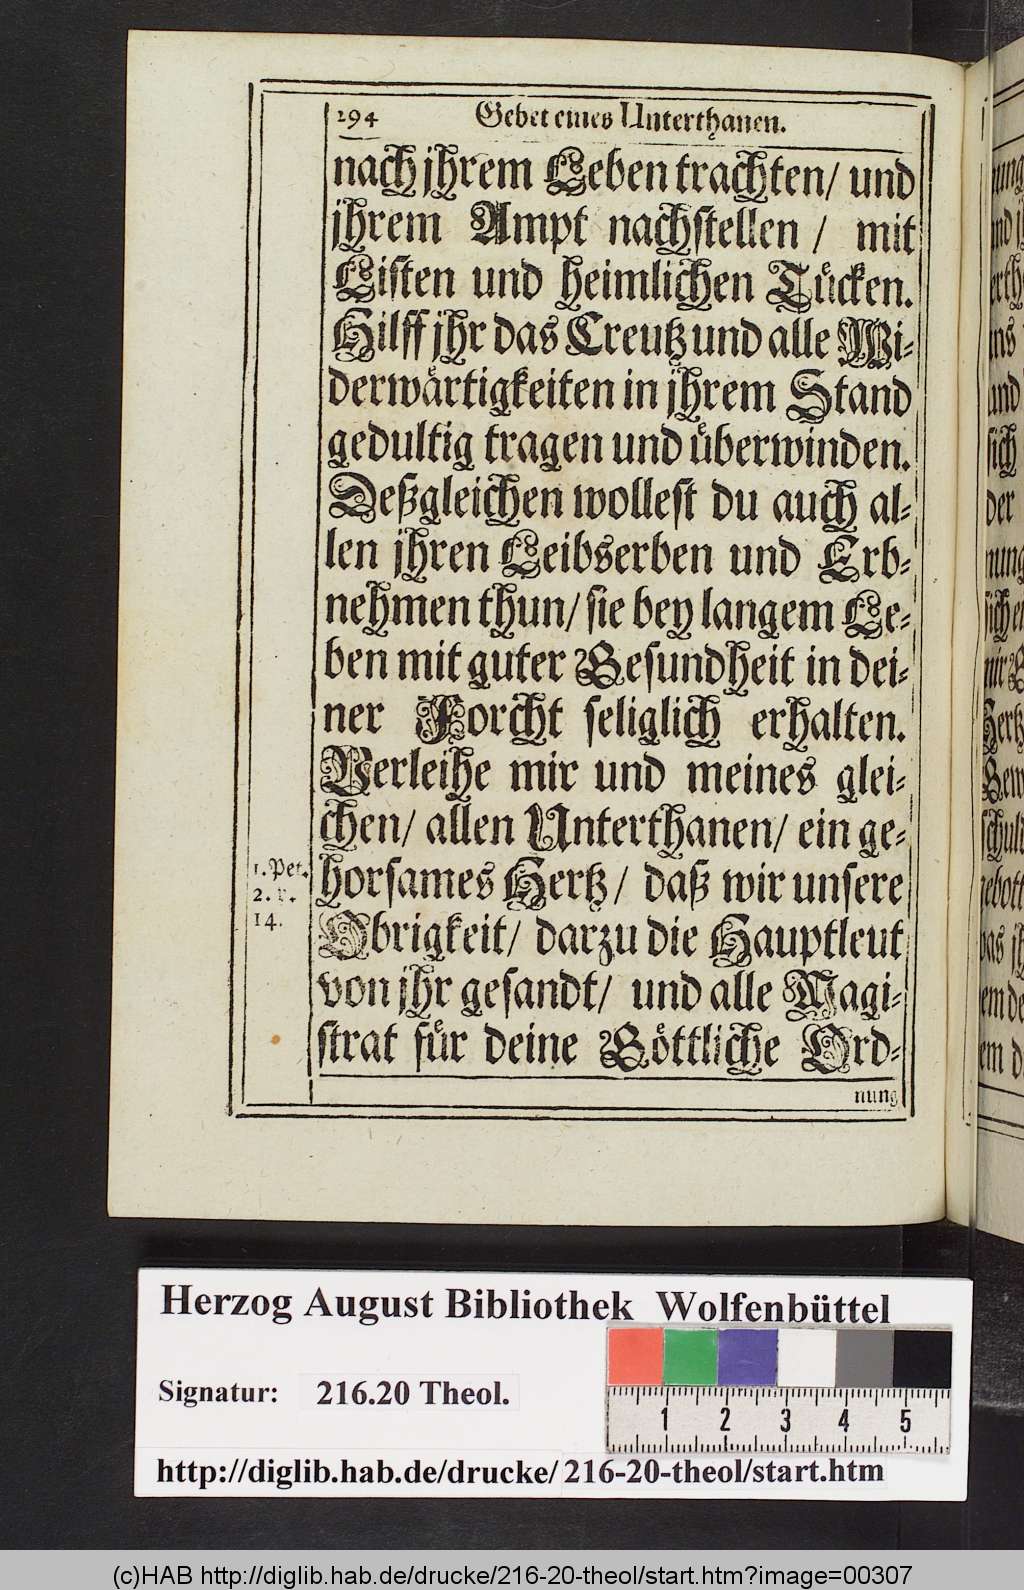 294 Gebet eines Unterthanen.
nach jhrem Leben trachten/ und
jhrem Ampt nachstellen / mit
Listen und heimlichen Tücken.
Hilff jhr das Creutz und alle Wi-
derwärtigkeiten in jhrem Stand
gedultig tragen und überwinden.
Deßgleichen wollest du auch al-
len jhren Leibserben und Erb-
nehmen thun/ sie bey langem Le-
ben mit guter Gesundheit in dei-
ner Forcht seliglich erhalten.
Verleihe mir und meines glei-
chen/ allen Unterthanen/ ein ge-
horsames Hertz/ daß wir unsere
Obrigkeit/ darzu die Hauptleut
von jhr gesandt/ und alle Magi-
strat für deine Göttliche Ord-
nung
1. Pet.
2. v.
14.
Herzog August Bibliothek Wolfenbüttel
Signatur: 216.20 Theol.
1 2 3 4 5
http://diglib.hab.de/drucke/216-20-theol/start.htm
(c)HAB http://diglib.hab.de/drucke/216-20-theol/start.htm?image=00307